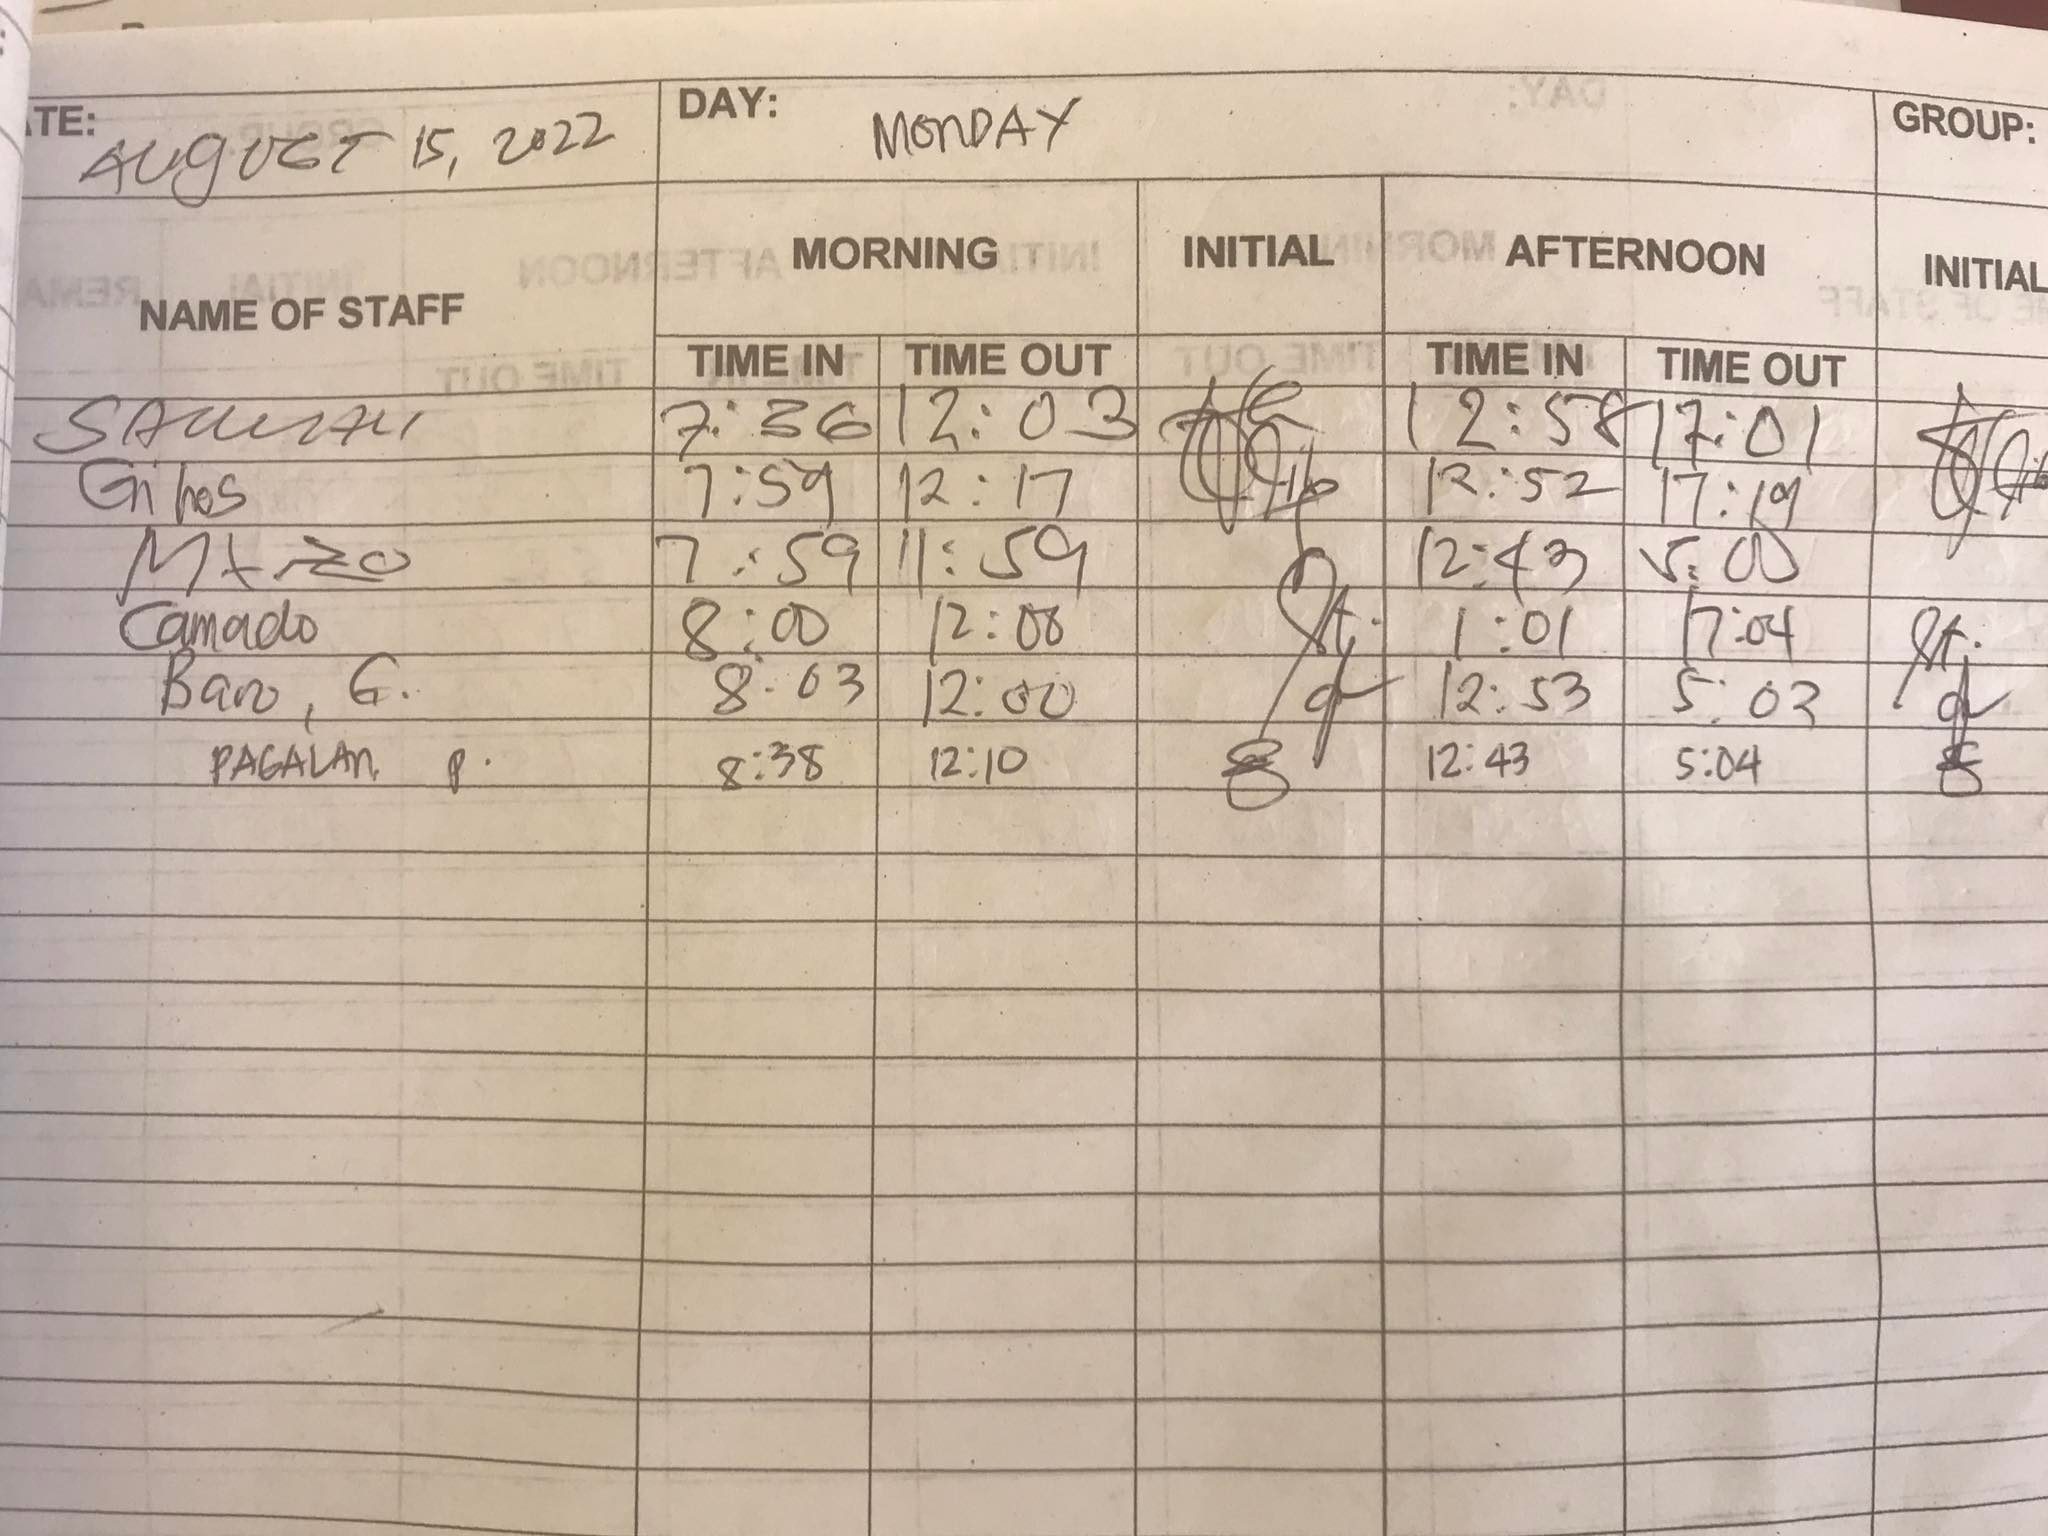 ATE: AUGUST 15, 2022 DAY: MONDAY GROUP:
NAME OF STAFF MORNING INITIAL AFTERNOON INITIAL
TIME IN TIME OUT TIME IN TIME OUT
7:36 12:03 12:58 17:01
7:59 12:17 12:52 17:19
7:59 11:59 12:43 5:00
Camado 8:00 12:08 1:01 17:04
Baro, G. 8:03 12:00 12:53 5:03
PAGALAN, P. 8:38 12:10 12:43 5:04